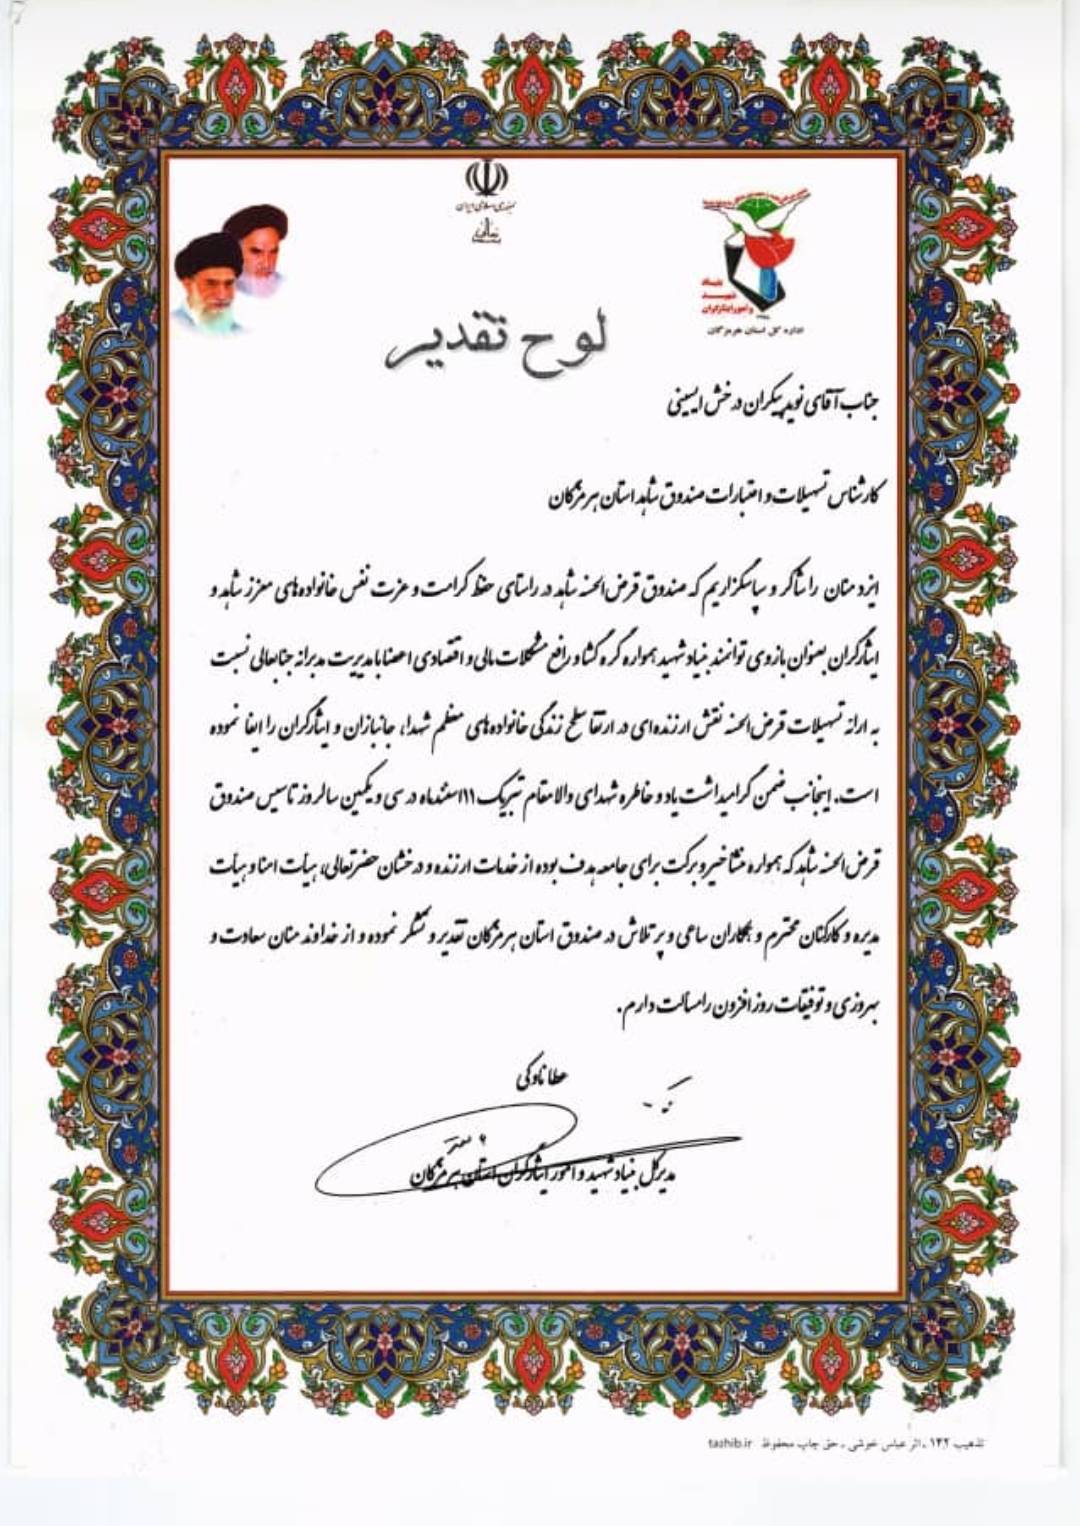 جمهوری اسلامی ایران
بنیاد
شهید
و امور ایثارگران
اداره کل استان هرمزگان
لوح تقدیر
جناب آقای نوید پیکران درخش ایسینی
کارشناس تسهیلات و اعتبارات صندوق شاهد استان هرمزگان
ایزد منان را شاکر و سپاسگزاریم که صندوق قرض الحسنه شاهد در راستای حفظ کرامت و عزت نفس خانواده های معزز شاهد و
ایثارگران بعنوان بازوی توانمند بنیاد شهید همواره گره گشا و رافع مشکلات مالی و اقتصادی اعضا با مدیریت مدبرانه جنابعالی نسبت
به ارائه تسهیلات قرض الحسنه نقش ارزنده ای در ارتقا سطح زندگی خانواده های معظم شهدا، جانبازان و ایثارگران را ایفا نموده
است. اینجانب ضمن گرامیداشت یاد و خاطره شهدای والامقام تبریک ۱۱ اسفندماه در سی و یکمین سالروز تاسیس صندوق
قرض الحسنه شاهد که همواره منشا خیر و برکت برای جامعه هدف بوده از خدمات ارزنده و درخشان حضرتعالی، هیأت امنا و هیأت
مدیره و کارکنان محترم و همکاران ساعی و پرتلاش در صندوق استان هرمزگان تقدیر و تشکر نموده و از خداوند منان سعادت و
بهروزی و توفیقات روزافزون را مسألت دارم.
عطا ناوکی
مدیرکل بنیاد شهید و امور ایثارگران استان هرمزگان
تذهیب ۱۴۲ ، اثر عباس خوشی ، حق چاپ محفوظ tazhib.ir